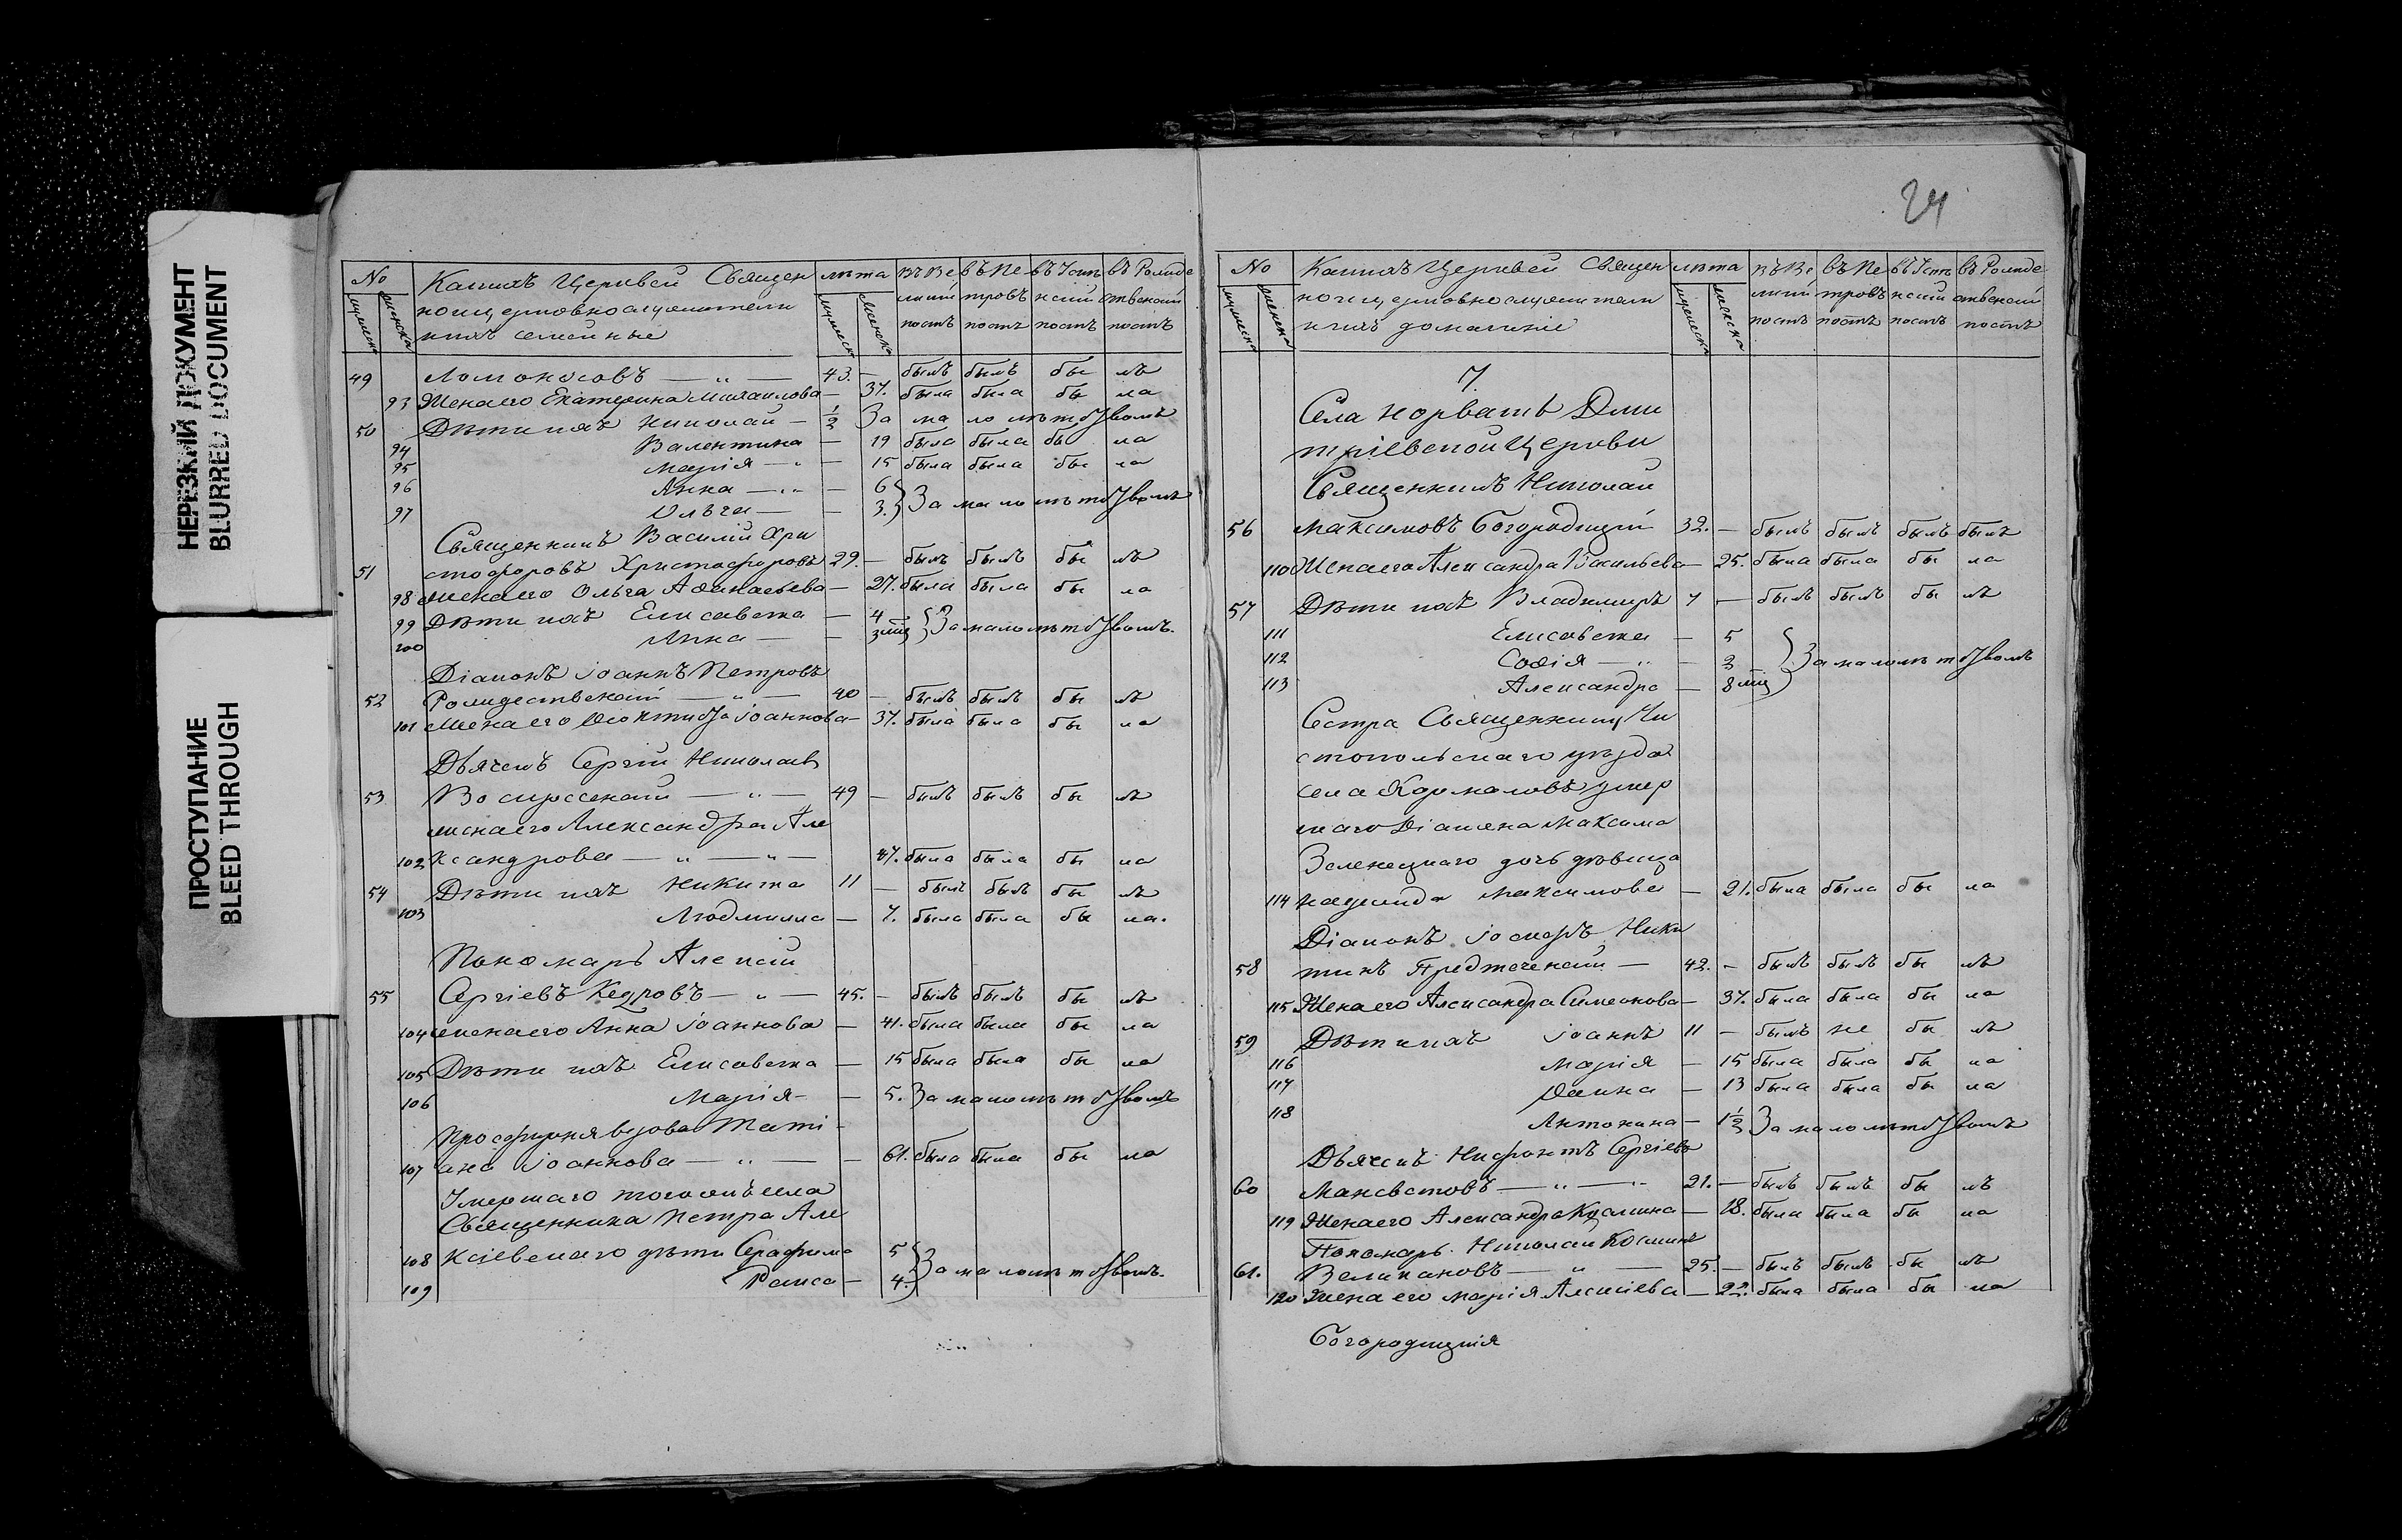 НЕРЕЗКИЙ ДОКУМЕНТ
BLURRED DOCUMENT
ПРОСТУПАНИЕ
BLEED THROUGH
No Какихъ Церквей Священ лѣта въ Ве въ Пе въ Успе въ Рожде
но и церковнослужители ликій тровъ нскій ственскій
ихъ семейные постъ постъ постъ постъ
мужеска женска мужеска женска
49 Ломоносовъ — „ — 43. — былъ былъ бы лъ
93 Жена его Екатерина Михаилова — 37. была была бы ла
50 Дѣти ихъ Николай — 1/2 За ма ло лѣтствомъ
94 Валентина — 19 была была бы ла
95 Марія — „ — 15 была была бы ла
96 Анна — „ — 6
97 Ольга — — 3. } За малолѣтствомъ
Священникъ Василій Хри
51 стофоровъ Христофоровъ 29. — былъ былъ бы лъ
98 Жена его Ольга Аѳанасьева — 27. была была бы ла
99 Дѣти ихъ Елисавета — 4 } За малолѣтствомъ.
100 Анна — — 3 мц
Діаконъ Іоаннъ Петровъ
52 Рождественскій — „ — 40 — былъ былъ бы лъ
101 Жена его Ѳеоктиста Іоаннова — 37. была была бы ла
Дьячекъ Сергій Николаев
53 Воскресенскій — „ — 49 — былъ былъ бы лъ
Жена его Александра Але
102 ксандрова — „ — „ — 47. была была бы ла
54 Дѣти ихъ Никита 11 — былъ былъ бы лъ
103 Людмилла — 7. была была бы ла.
Пономарь Алексій
55 Сергіевъ Кедровъ — „ — 45. — былъ былъ бы лъ
104 Жена его Анна Іоаннова — 41. была была бы ла
105 Дѣти ихъ Елисавета — 15 была была бы ла
106 Марія — — 5. За малолѣтствомъ
Просфирня вдова Таті
107 ана Іоаннова — „ — — 61. была была бы ла
Умершаго того жъ села
Священника Петра Але
108 ксіевскаго дѣти Серафима 5
109 Раиса — 4. } За малолѣтствомъ.
24
No Какихъ Церквей Священ лѣта въ Ве въ Пе въ Успе въ Рожде
но и церковнослужители ликій тровъ нскій ственскій
и ихъ домашніе постъ постъ постъ постъ
мужеска женска мужеска женска
7.
Села Норватъ Дми
тріевской Церкви
Священникъ Николай
56 Максимовъ Богородицкій 32. — былъ былъ былъ былъ
110 Жена его Александра Васильева — 25. была была бы ла
57 Дѣти ихъ Владимиръ 7 — былъ былъ бы лъ
111 Елисавета — 5
112 Софія — „ — 2 } За малолѣтствомъ
113 Александра — 8 мц
Сестра Священника Чи
стопольскаго уѣзда
села Кармаловъ умер
шаго Діакона Максима
Зеленецкаго дочь дѣвица
114 Надежда Максимова — 21. была была бы ла
Діаконъ Іосифъ Ники
58 тинъ Предтеченскій — 42. — былъ былъ бы лъ
115 Жена его Александра Симеонова — 37. была была бы ла
59 Дѣти ихъ Іоаннъ 11 — былъ не бы лъ
116 Марія — 15 была была бы ла
117 Фаина — 13 была была бы ла
118 Антонина — 1 1/2 За малолѣтствомъ
Дьячекъ Нифонтъ Сергіевъ
60 Мансветовъ — „ — „ 21. — былъ былъ бы лъ
119 Жена его Александра Козмина — 18. была была бы ла
Пономарь Николай Козминъ
61. Великановъ — „ — 25. — былъ былъ бы лъ
120 Жена его Марія Алексіева — 22. была была бы ла
Богородицкія